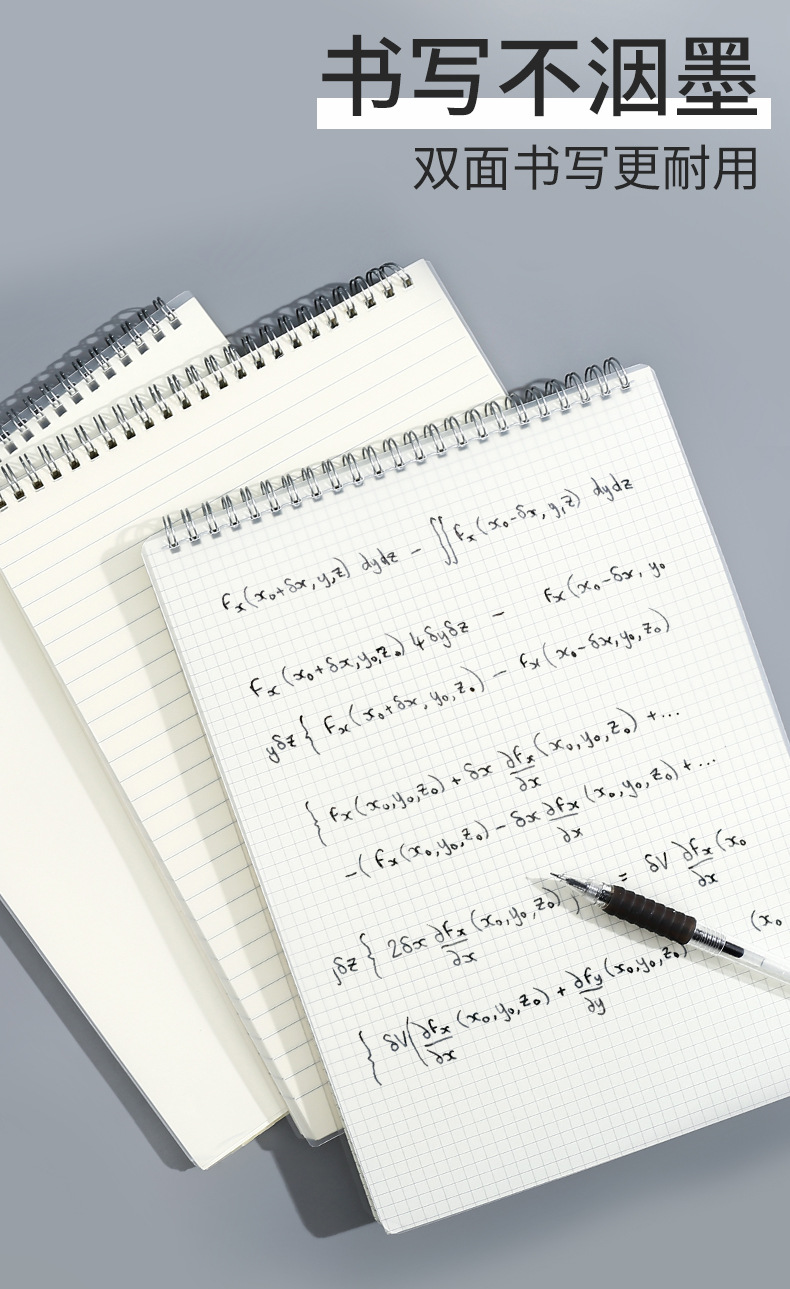 书写不洇墨
双面书写更耐用
Fx(x₀+δx, y, z) dydz − ∬Fx(x₀-δx, y, z) dydz
Fx(x₀+δx, y₀, z₀) 4δyδz − Fx(x₀-δx, y₀
yδz { Fx(x₀+δx, y₀, z₀) − Fx(x₀-δx, y₀, z₀)
{ Fx(x₀, y₀, z₀) + δx ∂Fx/∂x (x₀, y₀, z₀) + ...
−( Fx(x₀, y₀, z₀) − δx ∂Fx/∂x (x₀, y₀, z₀) + ...
δz { 2δx ∂Fx/∂x (x₀, y₀, z₀) } = δV ∂Fx/∂x (x₀
{ δV( ∂Fx/∂x (x₀, y₀, z₀) + ∂Fy/∂y (x₀, y₀, z₀) (x₀